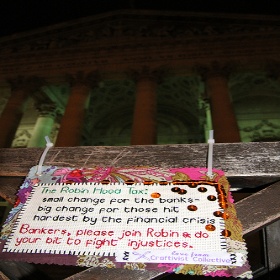 The Robin Hood Tax:
small change for the banks-
big change for those hit
hardest by the financial crisis
Bankers, please join Robin & do
your bit to fight injustices.
Love from
Craftivist Collective